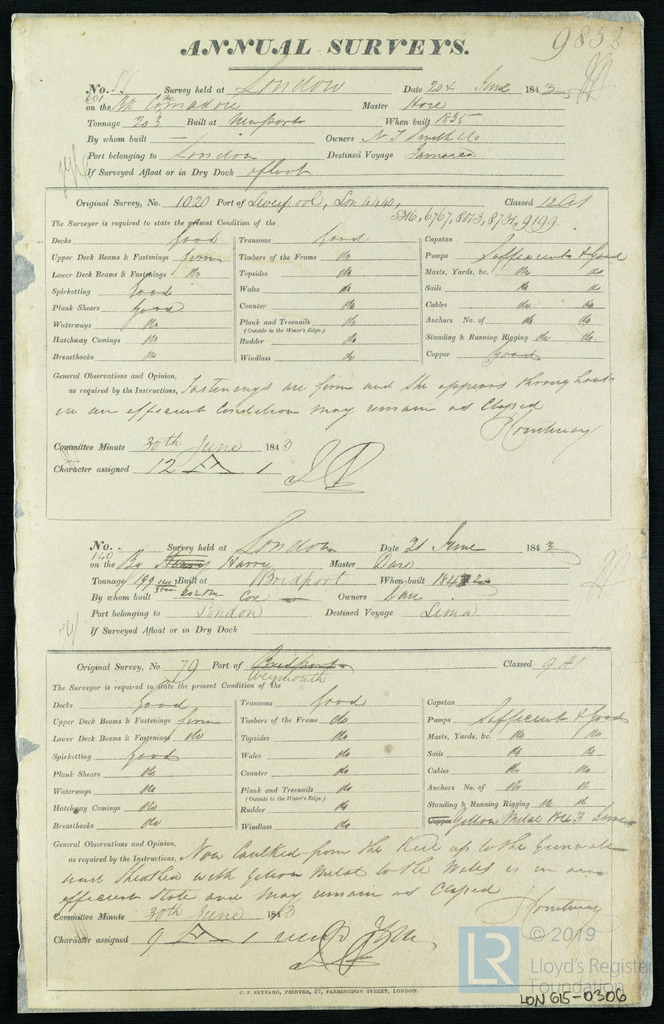 9858
ANNUAL SURVEYS.
No. Survey held at London Date 20th June 1843
on the Bk Comadore Master Hore
Tonnage 203 Built at Newport When built 1835
By whom built — Owners N T Smith &Co
Port belonging to London Destined Voyage Jamaica
If Surveyed Afloat or in Dry Dock afloat
Original Survey, No. 1020 Port of Liverpool, Lon 4440, Classed 12 A1
5316, 6767, 8073, 8731, 9199
The Surveyor is required to state the present Condition of the
Decks good Transoms good Capstan
Upper Deck Beams & Fastenings firm Timbers of the Frame do Pumps Sufficient & Good
Lower Deck Beams & Fastenings do Topsides do Masts, Yards, &c. do do
Spirketting good Wales do Sails do do
Plank Shears good Counter do Cables do do
Waterways do Plank and Treenails do Anchors No. of do do
(Outside to the Water's Edge.)
Hatchway Comings do Rudder do Standing & Running Rigging do do
Breasthooks do Windlass do Copper good
General Observations and Opinion,
as required by the Instructions, Fastenings are firm and she appears throughout
in an efficient Condition may remain as Classed
Committee Minute 30th June 1843
Character assigned 12 A 1
No. Survey held at London Date 21 June 1843
140
on the Bg Henry Harry Master Dare
Tonnage 199 Built at Bridport When built 1842
By whom built Cox Owners Dare
Port belonging to London Destined Voyage Lima
If Surveyed Afloat or in Dry Dock
Original Survey, No. 79 Port of Bridport Classed 9 A1
Weymouth
The Surveyor is required to state the present Condition of the
Decks good Transoms good Capstan
Upper Deck Beams & Fastenings firm Timbers of the Frame do Pumps Sufficient & Good
Lower Deck Beams & Fastenings do Topsides do Masts, Yards, &c. do do
Spirketting good Wales do Sails do do
Plank Shears do Counter do Cables do do
Waterways do Plank and Treenails do Anchors No. of do do
(Outside to the Water's Edge.)
Hatchway Comings do Rudder do Standing & Running Rigging do do
Breasthooks do Windlass do Copper Yellow Metal 1843 June
General Observations and Opinion,
as required by the Instructions, Now Caulked from the Keel up to the Gunwale
and Sheathed with Yellow Metal to the Wales is in an
efficient State and may remain as Classed
Committee Minute 30th June 1843
Character assigned 9 A 1
C. F. SEYFANG, PRINTER, 57, FARRINGDON STREET, LONDON.
LR © 2019
Lloyd's Register
Foundation
LON 615-0306